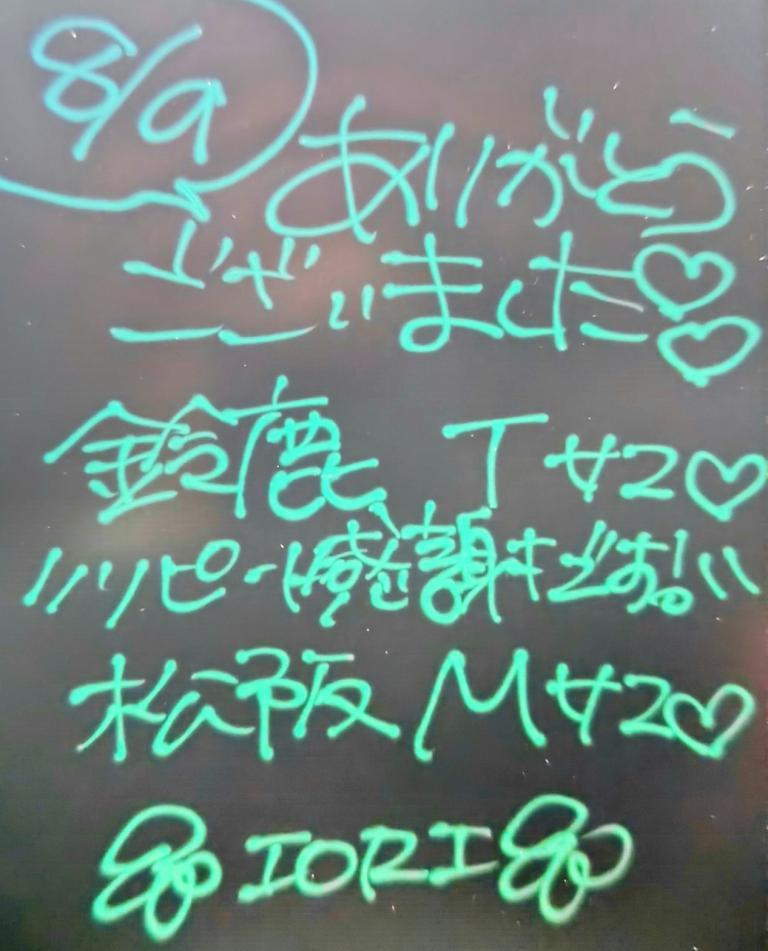 8/9
ありがとう
ございました♡♡
鈴鹿 Tサマ♡
リピート感謝です!!
松阪 Mサマ♡
IORI